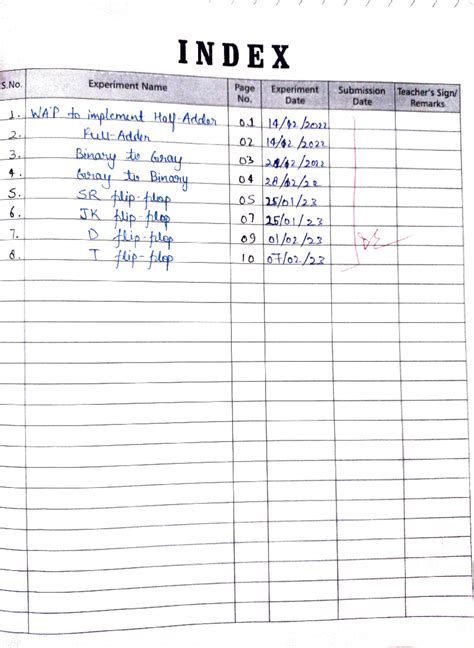 INDEX
S.No. Experiment Name Page No. Experiment Date Submission Date Teacher's Sign/ Remarks
1. WAP to implement Half-Adder 01 14/12/2022
2. Full-Adder 02 14/12/2022
3. Binary to Gray 03 28/12/2022
4. Gray to Binary 04 28/12/22
5. SR flip-flop 05 25/01/23
6. JK flip-flop 07 25/01/23
7. D flip-flop 09 01/02/23
8. T flip-flop 10 07/02/23